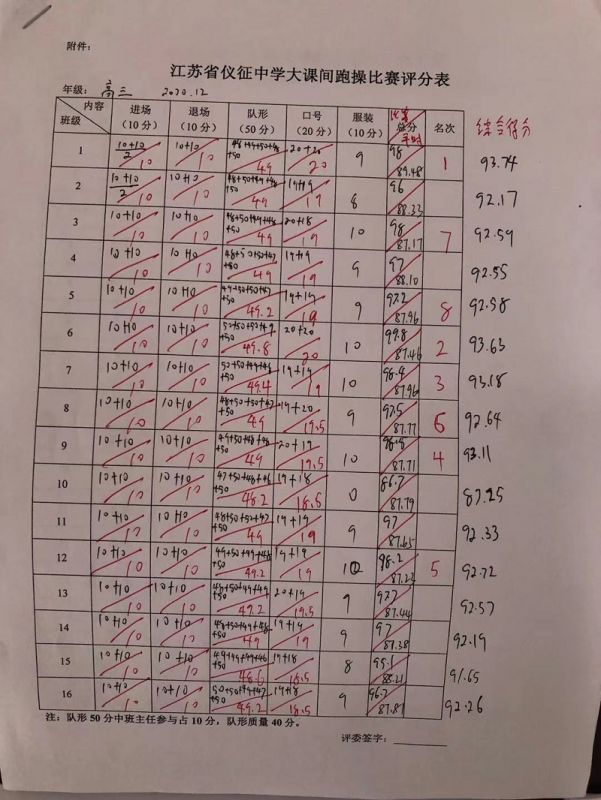 附件：
江苏省仪征中学大课间跑操比赛评分表
年级： 高三 2020.12
内容 班级 进场（10分） 退场（10分） 队形（50分） 口号（20分） 服装（10分） 比赛总分 平时 名次 综合得分
1 10+10/2 10 10+10 10 +50 49 20+20 20 9 98 89.48 1 93.74
2 10+10/2 10 10+10 10 +50 49 19+19 19 8 96 88.33 92.17
3 10+10 10 10+10 10 48+50+49+48+50 49 20+18 19 10 98 87.17 7 92.59
4 10+10 10 10+10 10 48+50+50+47+50 49 19+19 19 9 97 88.10 92.55
5 10+10 10 10+10 10 49+50+50+47+50 49.2 19+19 19 9 97.2 87.96 8 92.58
6 10+10 10 10+10 10 50+50+50+49+50 49.8 20+20 20 10 99.8 87.46 2 93.63
7 10+10 10 10+10 10 50+50+49+48+50 49.4 19+19 19 10 98.4 87.96 3 93.18
8 10+10 10 10+10 10 48+50+50+47+50 49 19+20 19.5 9 97.5 87.77 6 92.64
9 10+10 10 10+10 10 49+50+48+48+50 49 20+19 19.5 10 98.5 87.71 4 93.11
10 10+10 10 10+10 10 47+50+48+46+50 48.2 19+18 18.5 0 86.7 87.79 87.25
11 10+10 10 10+10 10 48+50+50+47+50 49 19+19 19 9 97 87.65 92.33
12 10+10 10 10+10 10 49+50+49+48+50 49.2 19+19 19 10 98.2 87.23 5 92.72
13 10+10 10 10+10 10 48+50+49+49+50 49.2 20+19 19.5 9 97.7 87.44 92.57
14 10+10 10 10+10 10 48+50+49+48+50 49 19+19 19 9 97 87.38 92.19
15 10+10 10 10+10 10 49+49+49+46+50 48.6 19+18 18.5 8 95.1 88.21 91.65
16 10+10 10 10+10 10 50+50+49+47+50 49.2 19+18 18.5 9 96.7 87.81 92.26
注：队形50分中班主任参与占10分，队形质量40分。
评委签字：